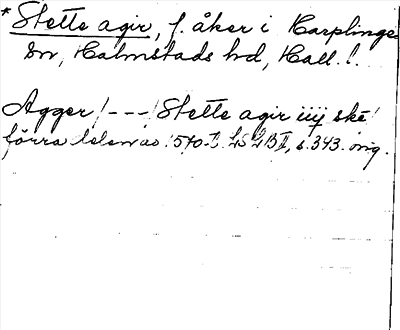 * Stette agir, f. åker i Harplinge
sn, Halmstads hd, Hall. l.
Agger / --- / Stette agir iiij ske /
förra delen av 1570-t. LSLB II, s. 343. orig.